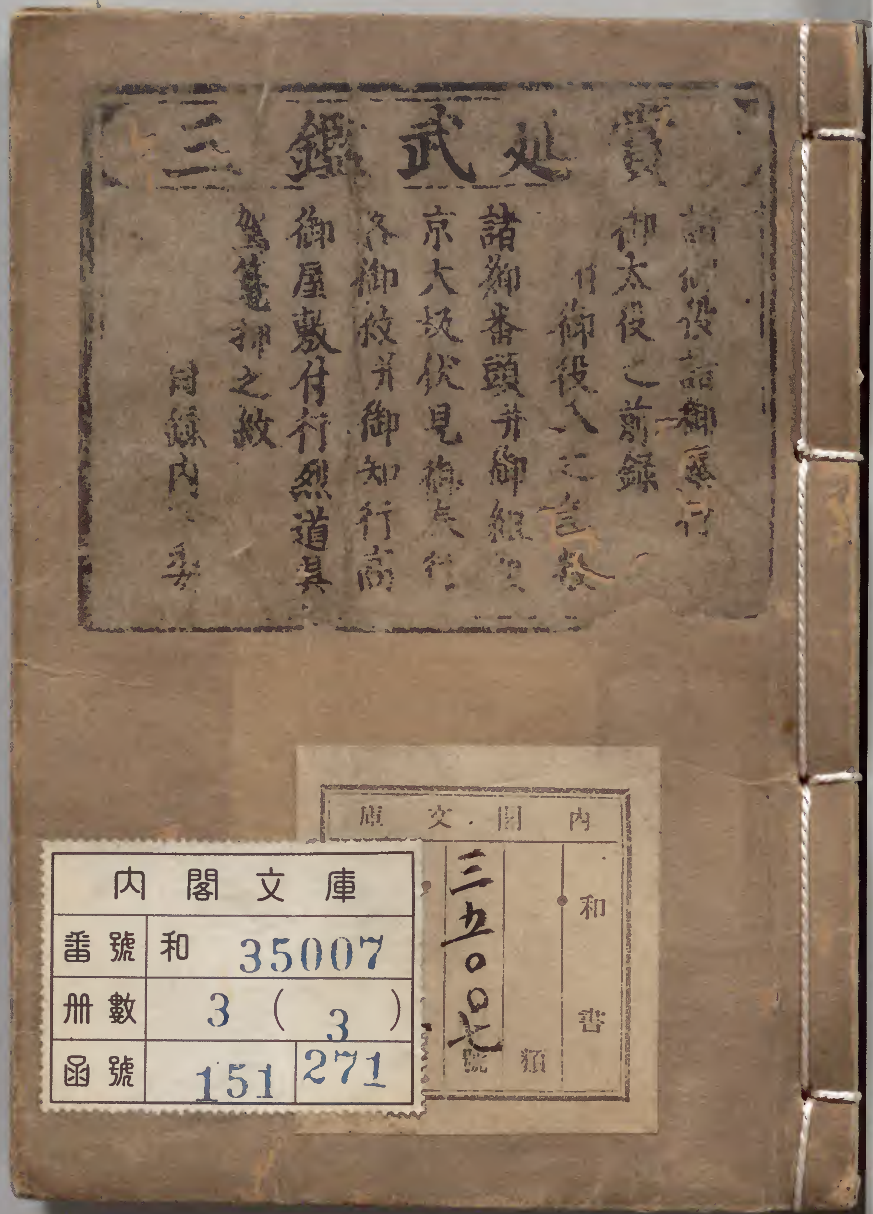 寳延武鑑三
諸御役諸御奉行
御太役之前録
并御役人之言数
諸御番頭并御組
京大坂伏見御奉行
各御紋并御知行高
御屋敷付行烈道具
駕籠押之紋
目録内
内閣文庫
和書
類
三五〇〇七號
内閣文庫
番號 和 35007
册數 3(3)
函號 151 271